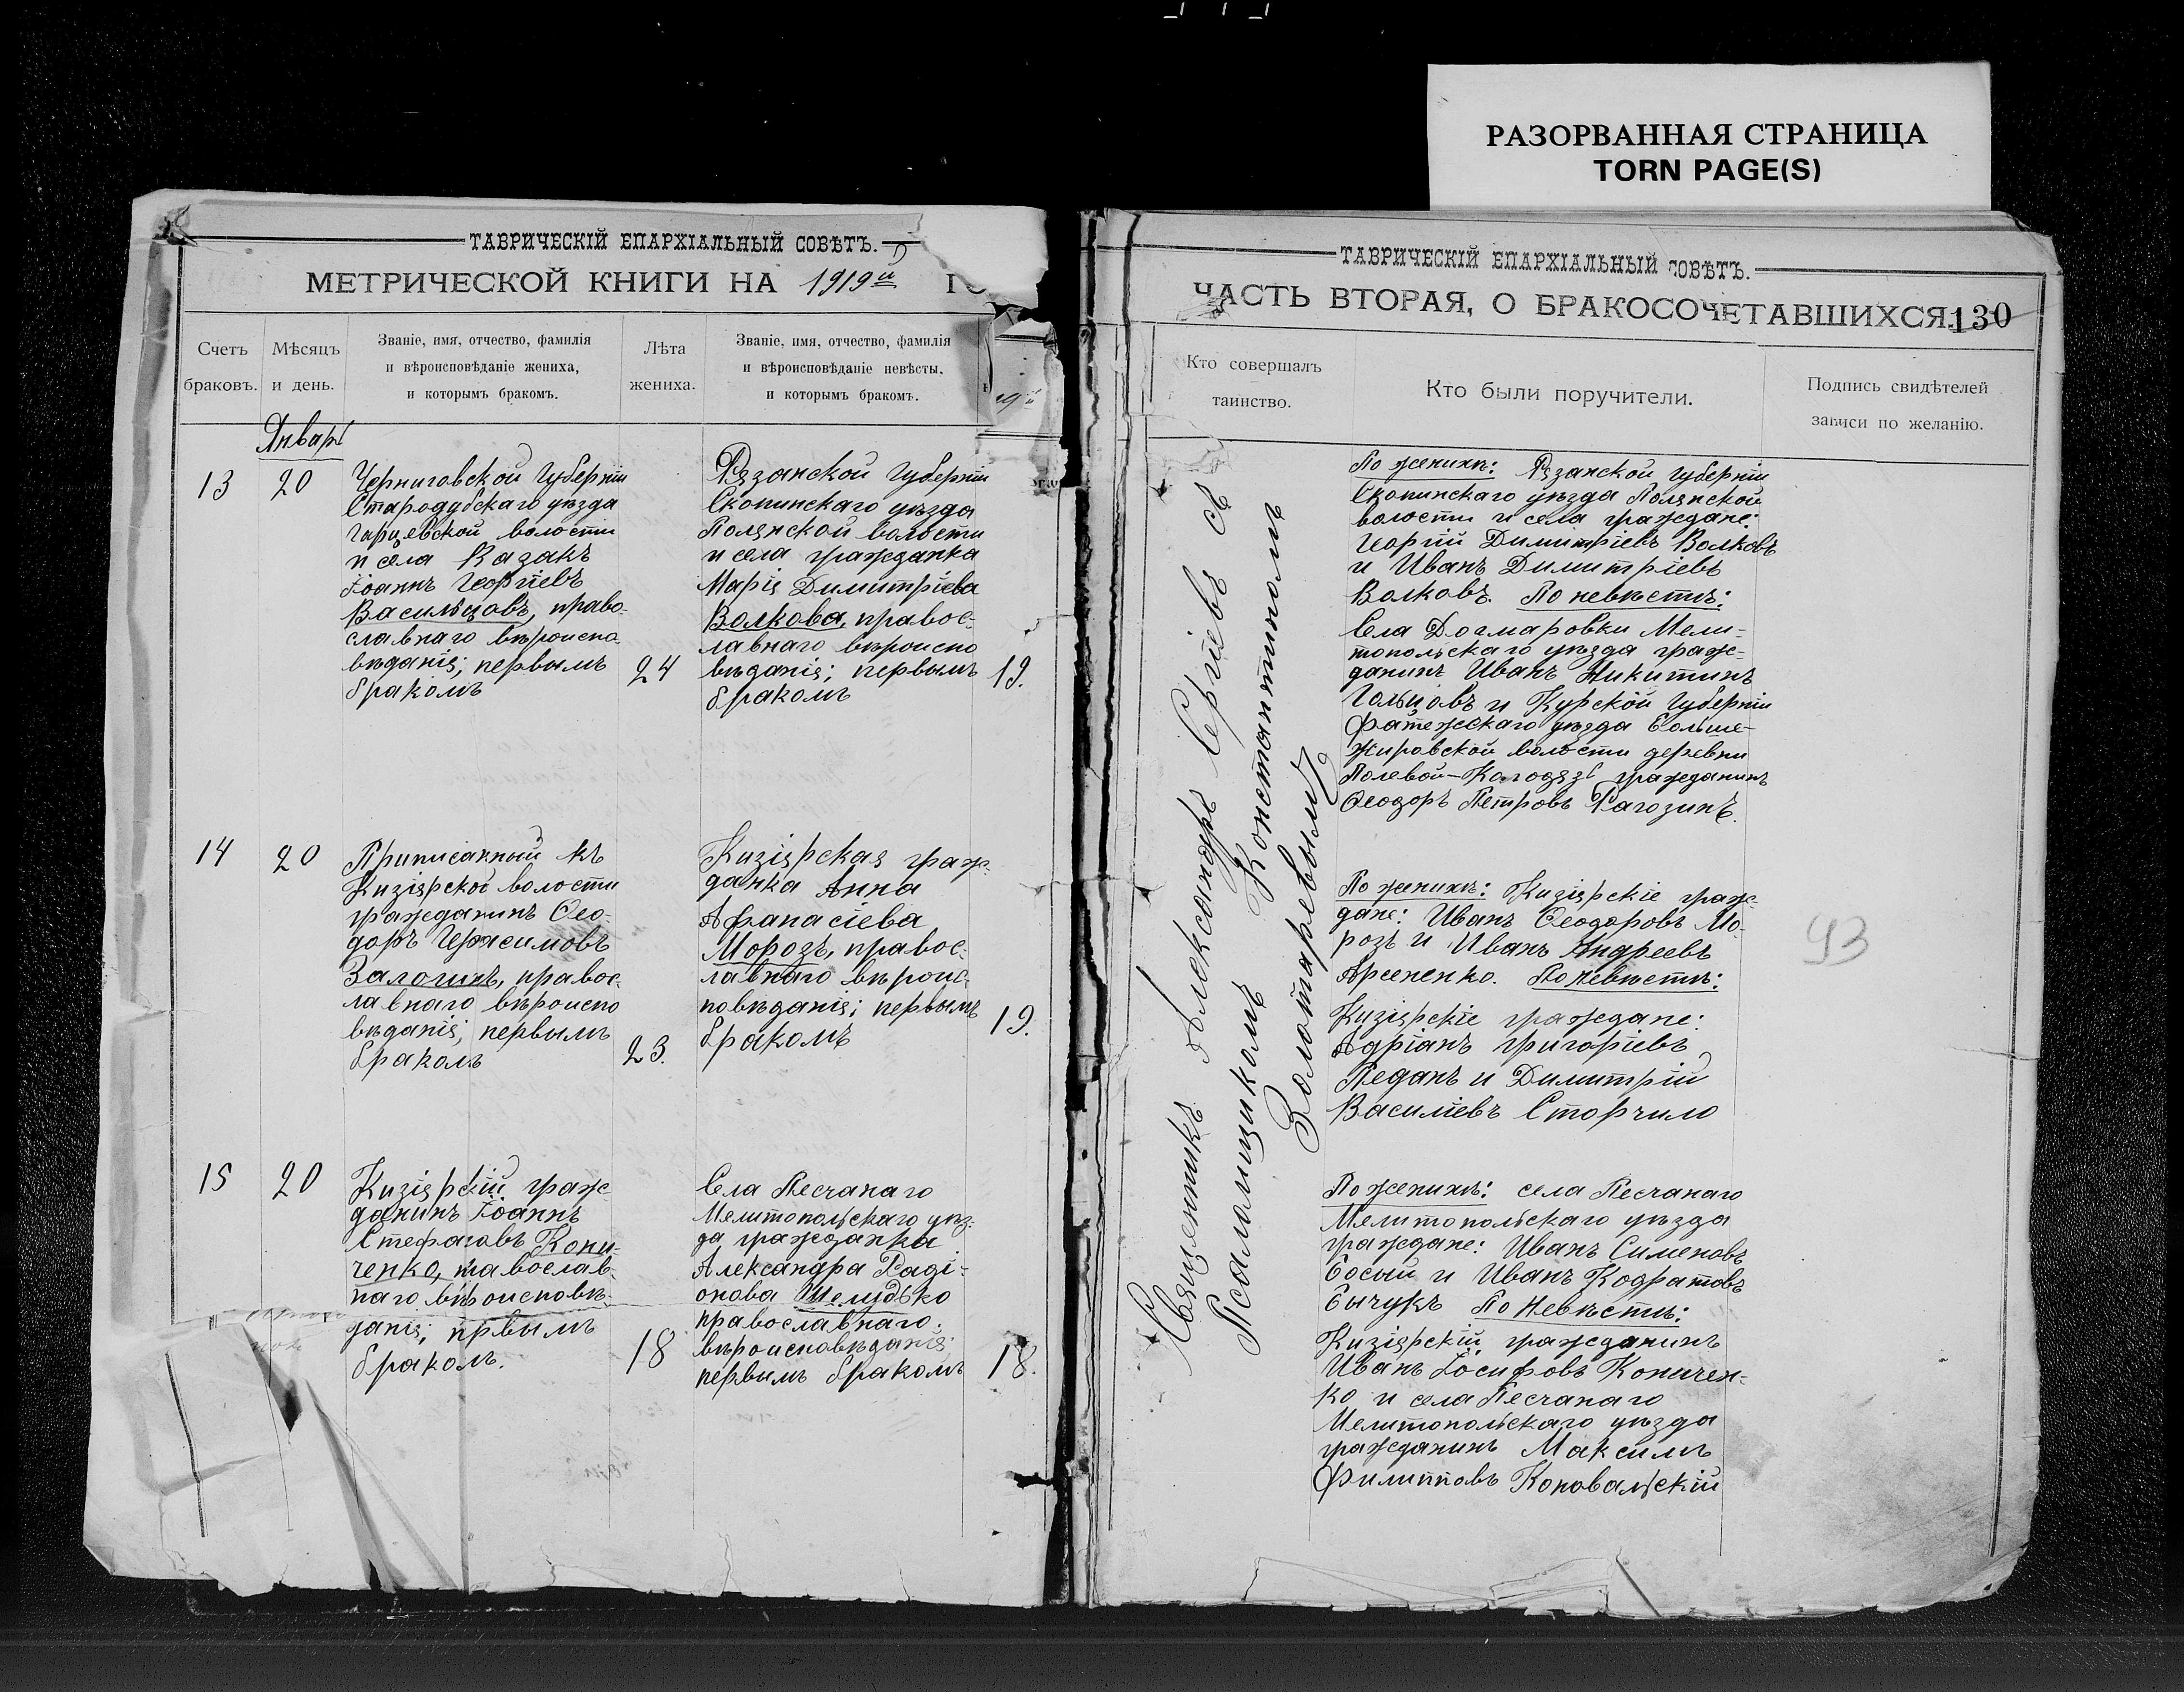 РАЗОРВАННАЯ СТРАНИЦА
TORN PAGE(S)
ТАВРИЧЕСКІЙ ЕПАРХІАЛЬНЫЙ СОВѢТЪ.
МЕТРИЧЕСКОЙ КНИГИ НА 1919й ГО
Счетъ
браковъ.
Мѣсяцъ
и день.
Званіе, имя, отчество, фамилія
и вѣроисповѣданіе жениха,
и которымъ бракомъ.
Лѣта
жениха.
Званіе, имя, отчество, фамилія
и вѣроисповѣданіе невѣсты,
и которымъ бракомъ.
Январь
13
20
Черниговской губерніи
Стародубскаго уѣзда
волости
и села Казакъ
Іоаннъ Георгіевъ
Васильцовъ, право-
славнаго вѣроиспо-
вѣданія; первымъ
бракомъ
24
Рязанской губерніи
Скопинскаго уѣзда
Полянской волости
и села гражданка
Марія Димитріева
Волкова, правос-
лавнаго вѣроиспо
вѣданія; первымъ
бракомъ
19.
14
20
Приписанный къ
Кизіярской волости
гражданинъ Ѳео-
доръ Герасимовъ
Залогинъ, правос-
лавнаго вѣроиспо
вѣданія; первымъ
бракомъ
23.
Кизіярская граж-
данка Анна
Афанасіева
Морозъ, правос-
лавнаго вѣроис-
повѣданія; первымъ
бракомъ
19.
15
20
Кизіярскій граж-
данинъ Іоаннъ
Стефановъ Кони-
ченко, православ-
наго вѣроисповѣ-
данія; првымъ
бракомъ.
18
Села Песчанаго
Мелитопольскаго уѣз-
да гражданка
Александра Раді-
онова Шелудько
православнаго
вѣроисповѣданія
первымъ бракомъ
18.
ТАВРИЧЕСКІЙ ЕПАРХІАЛЬНЫЙ СОВѢТЪ.
ЧАСТЬ ВТОРАЯ, О БРАКОСОЧЕТАВШИХСЯ.
130
Кто совершалъ
таинство.
Кто были поручители.
Подпись свидѣтелей
записи по желанію.
Священникъ Александръ Сергіевъ съ
Псаломщикомъ Константиномъ
Золотаревымъ
По женихѣ: Рязанской губерніи
Скопинскаго уѣзда Полянской
волости и села граждане:
Георгій Димитріевъ Волковъ
и Иванъ Димитріевъ
Волковъ. По невѣстѣ:
Села Догмаровки Мели-
топольскаго уѣзда граж-
данинъ Иванъ Никитинъ
Гольцовъ и Курской губерніи
Фатежскаго уѣзда Больше-
Жировской волости деревни
Полевой-Колодязь гражданинъ
Ѳеодоръ Петровъ Рагозинъ.
По женихѣ: Кизіярскіе граж-
дане: Иванъ Ѳеодоровъ Мо-
розъ и Иванъ Андреевъ
Арсененко. По невѣстѣ:
Кизіярскіе граждане:
Адріанъ Григоріевъ
Педанъ и Димитрій
Василіевъ Сторчило
93
По женихѣ: села Песчанаго
Мелитопольскаго уѣзда
граждане: Иванъ Сименовъ
Босый и Иванъ Кодратовъ
Бычукъ По невѣстѣ:
Кизіярскій гражданинъ
Иванъ Іосифовъ Коничен-
ко и села Песчанаго
Мелитопольскаго уѣзда
гражданинъ Максимъ
Филипповъ Коновальскій